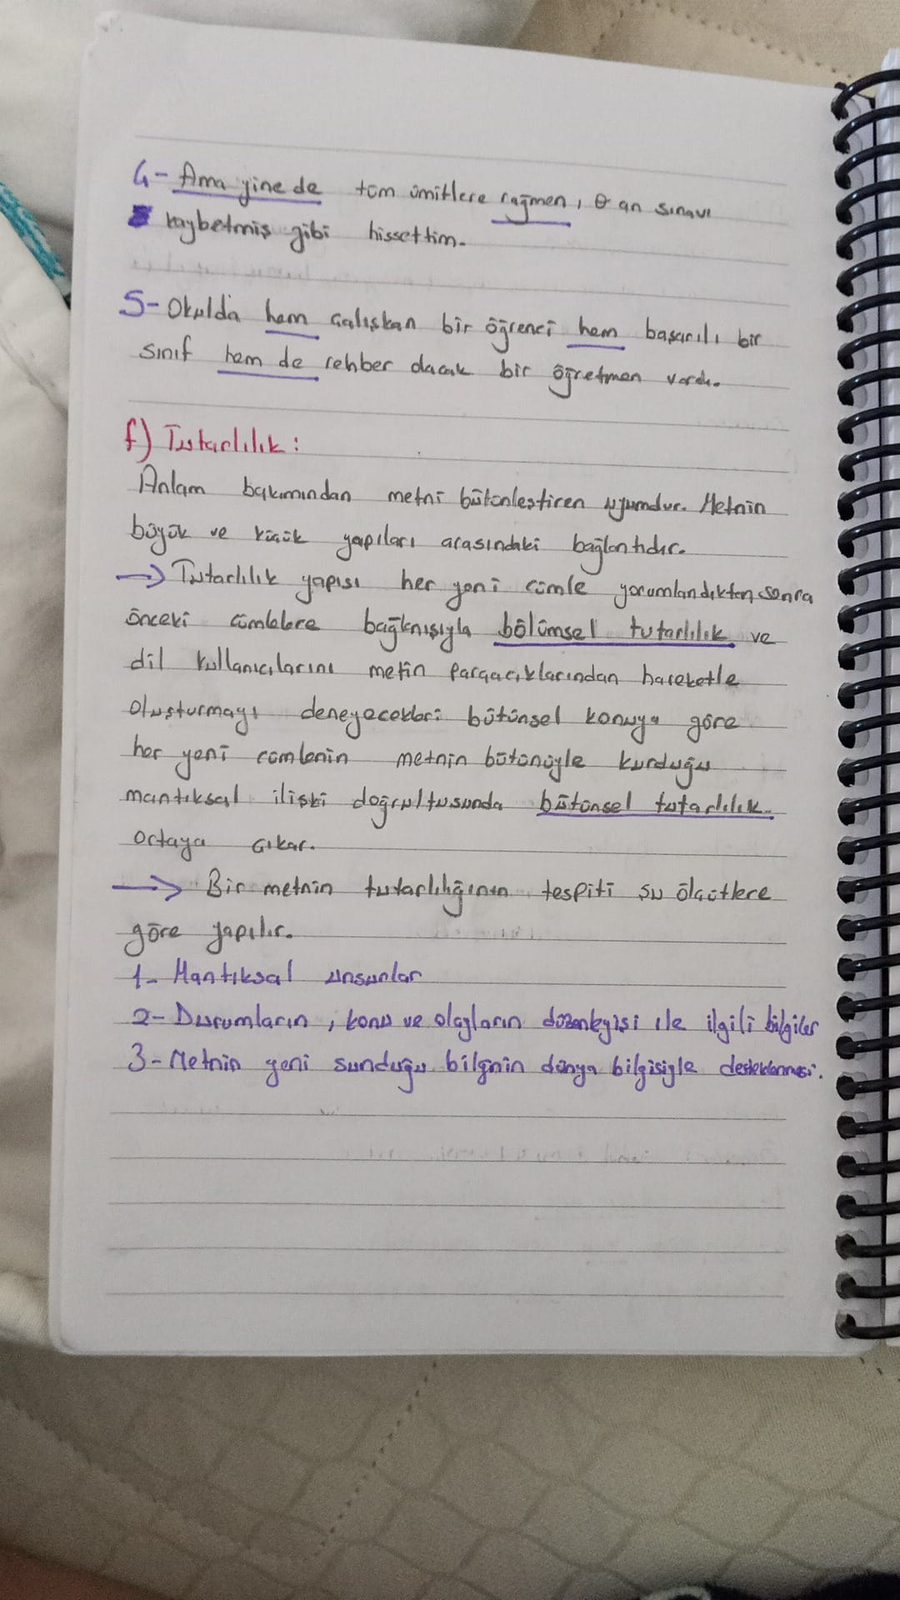 4- Ama yine de tüm ümitlere rağmen, o an sınavı
kaybetmiş gibi hissettim.
5- Okulda hem çalışkan bir öğrenci hem başarılı bir
sınıf hem de rehber olacak bir öğretmen vardı.
f) Tutarlılık:
Anlam bakımından metni bütünleştiren uyumdur. Metnin
büyük ve küçük yapıları arasındaki bağlantıdır.
→ Tutarlılık yapısı her yeni cümle yorumlandıktan sonra
önceki cümlelere bağlanışıyla bölümsel tutarlılık ve
dil kullanıcılarını metin parçacıklarından hareketle
oluşturmayı deneyecekleri bütünsel konuya göre
her yeni cümlenin metnin bütünüyle kurduğu
mantıksal ilişki doğrultusunda bütünsel tutarlılık
ortaya çıkar.
→ Bir metnin tutarlılığının tespiti şu ölçütlere
göre yapılır.
1- Mantıksal unsunlar
2- Durumların, konu ve olayların düzenleyişi ile ilgili bilgiler
3- Metnin yeni sunduğu bilginin dünya bilgisiyle desteklenmesi.